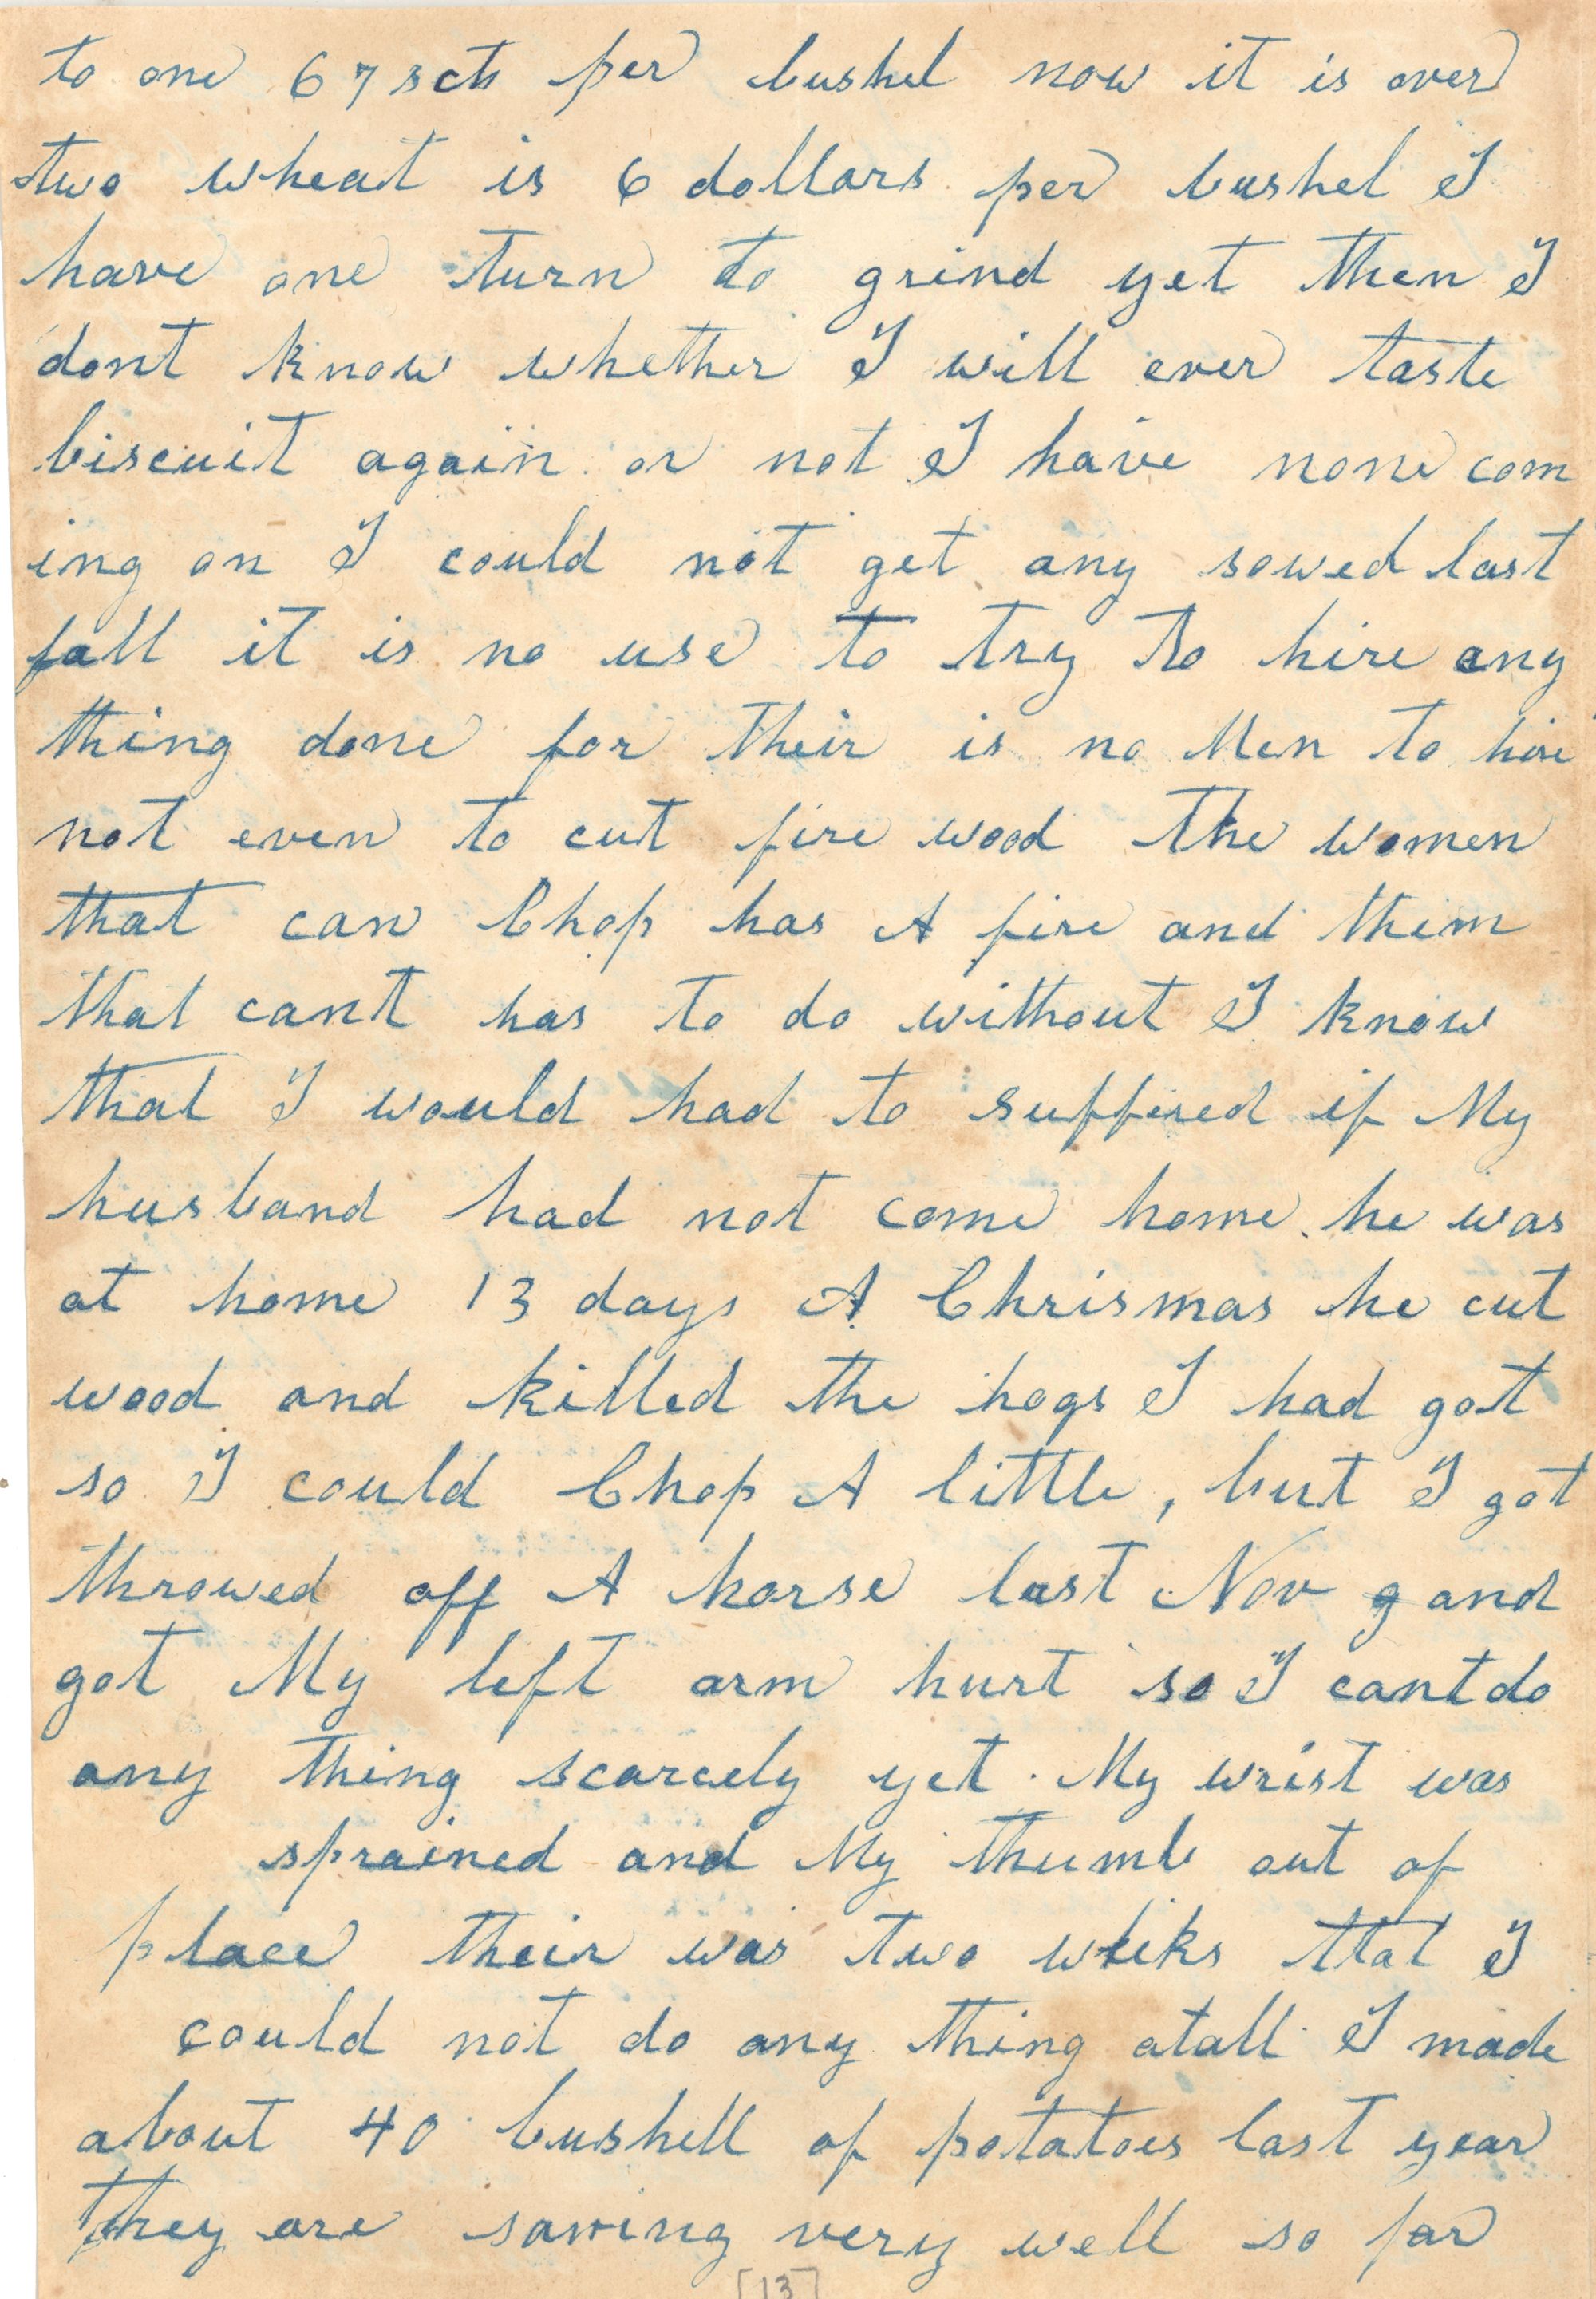 to one 67 scts per bushel now it is over
two wheat is 6 dollars per bushel I
have one turn to grind yet then I
dont know whether I will ever taste
biscuit again or not I have none com
ing on I could not get any sowed last
fall it is no use to try to hire any
thing done for their is no Men to hire
not even to cut fire wood The women
that can Chop has A fire and them
that cant has to do without I know
that I would had to suffired if My
husband had not come home he was
at home 13 days A Chrismas he cut
wood and killed the hogs I had got
so I could Chop A little, but I got
throwed off A horse last Nov 9 and
got My left arm hurt so I cant do
any thing scarcely yet. My wrist was
sprained and My thumb out of
place their was two weeks that I
could not do any thing atall I made
about 40 bushell of potatoes last year
they are saving very well so far
[13]